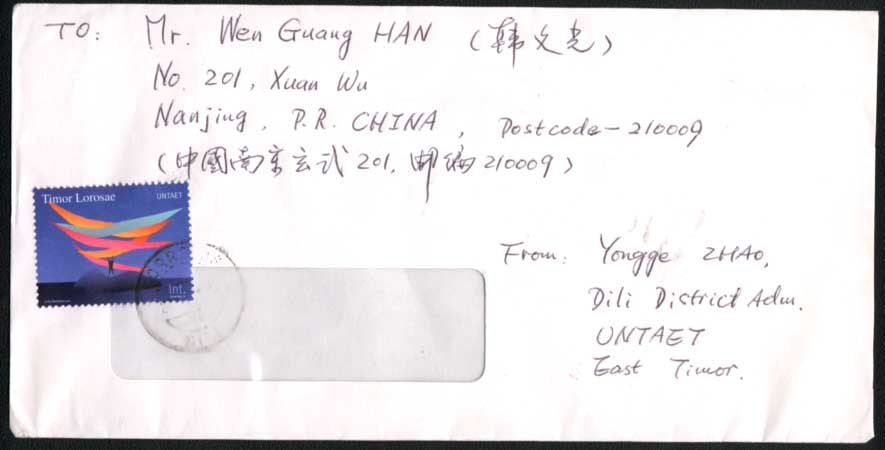 TO: Mr. Wen Guang HAN (韩文光)
No. 201, Xuan Wu
Nanjing, P.R. CHINA, Postcode-210009
(中國南京玄武201,邮编210009)
Timor Lorosae UNTAET
Int.
From: Yongge ZHAO,
Dili District Adm.
UNTAET
East Timor.